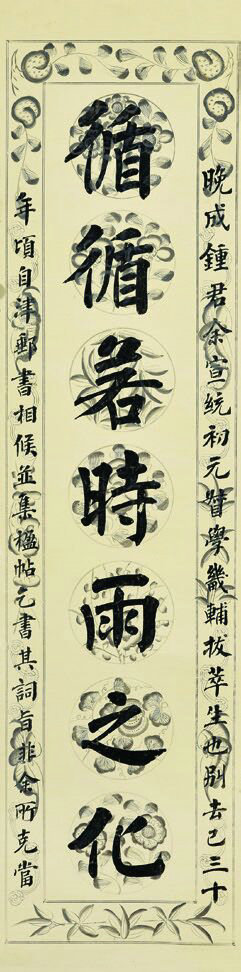 晚成鍾君余宣統初元督學畿輔拔萃生也別去已三十
循循若時雨之化
年頃自津郵書相候並集楹帖乞書其詞旨非余所克當